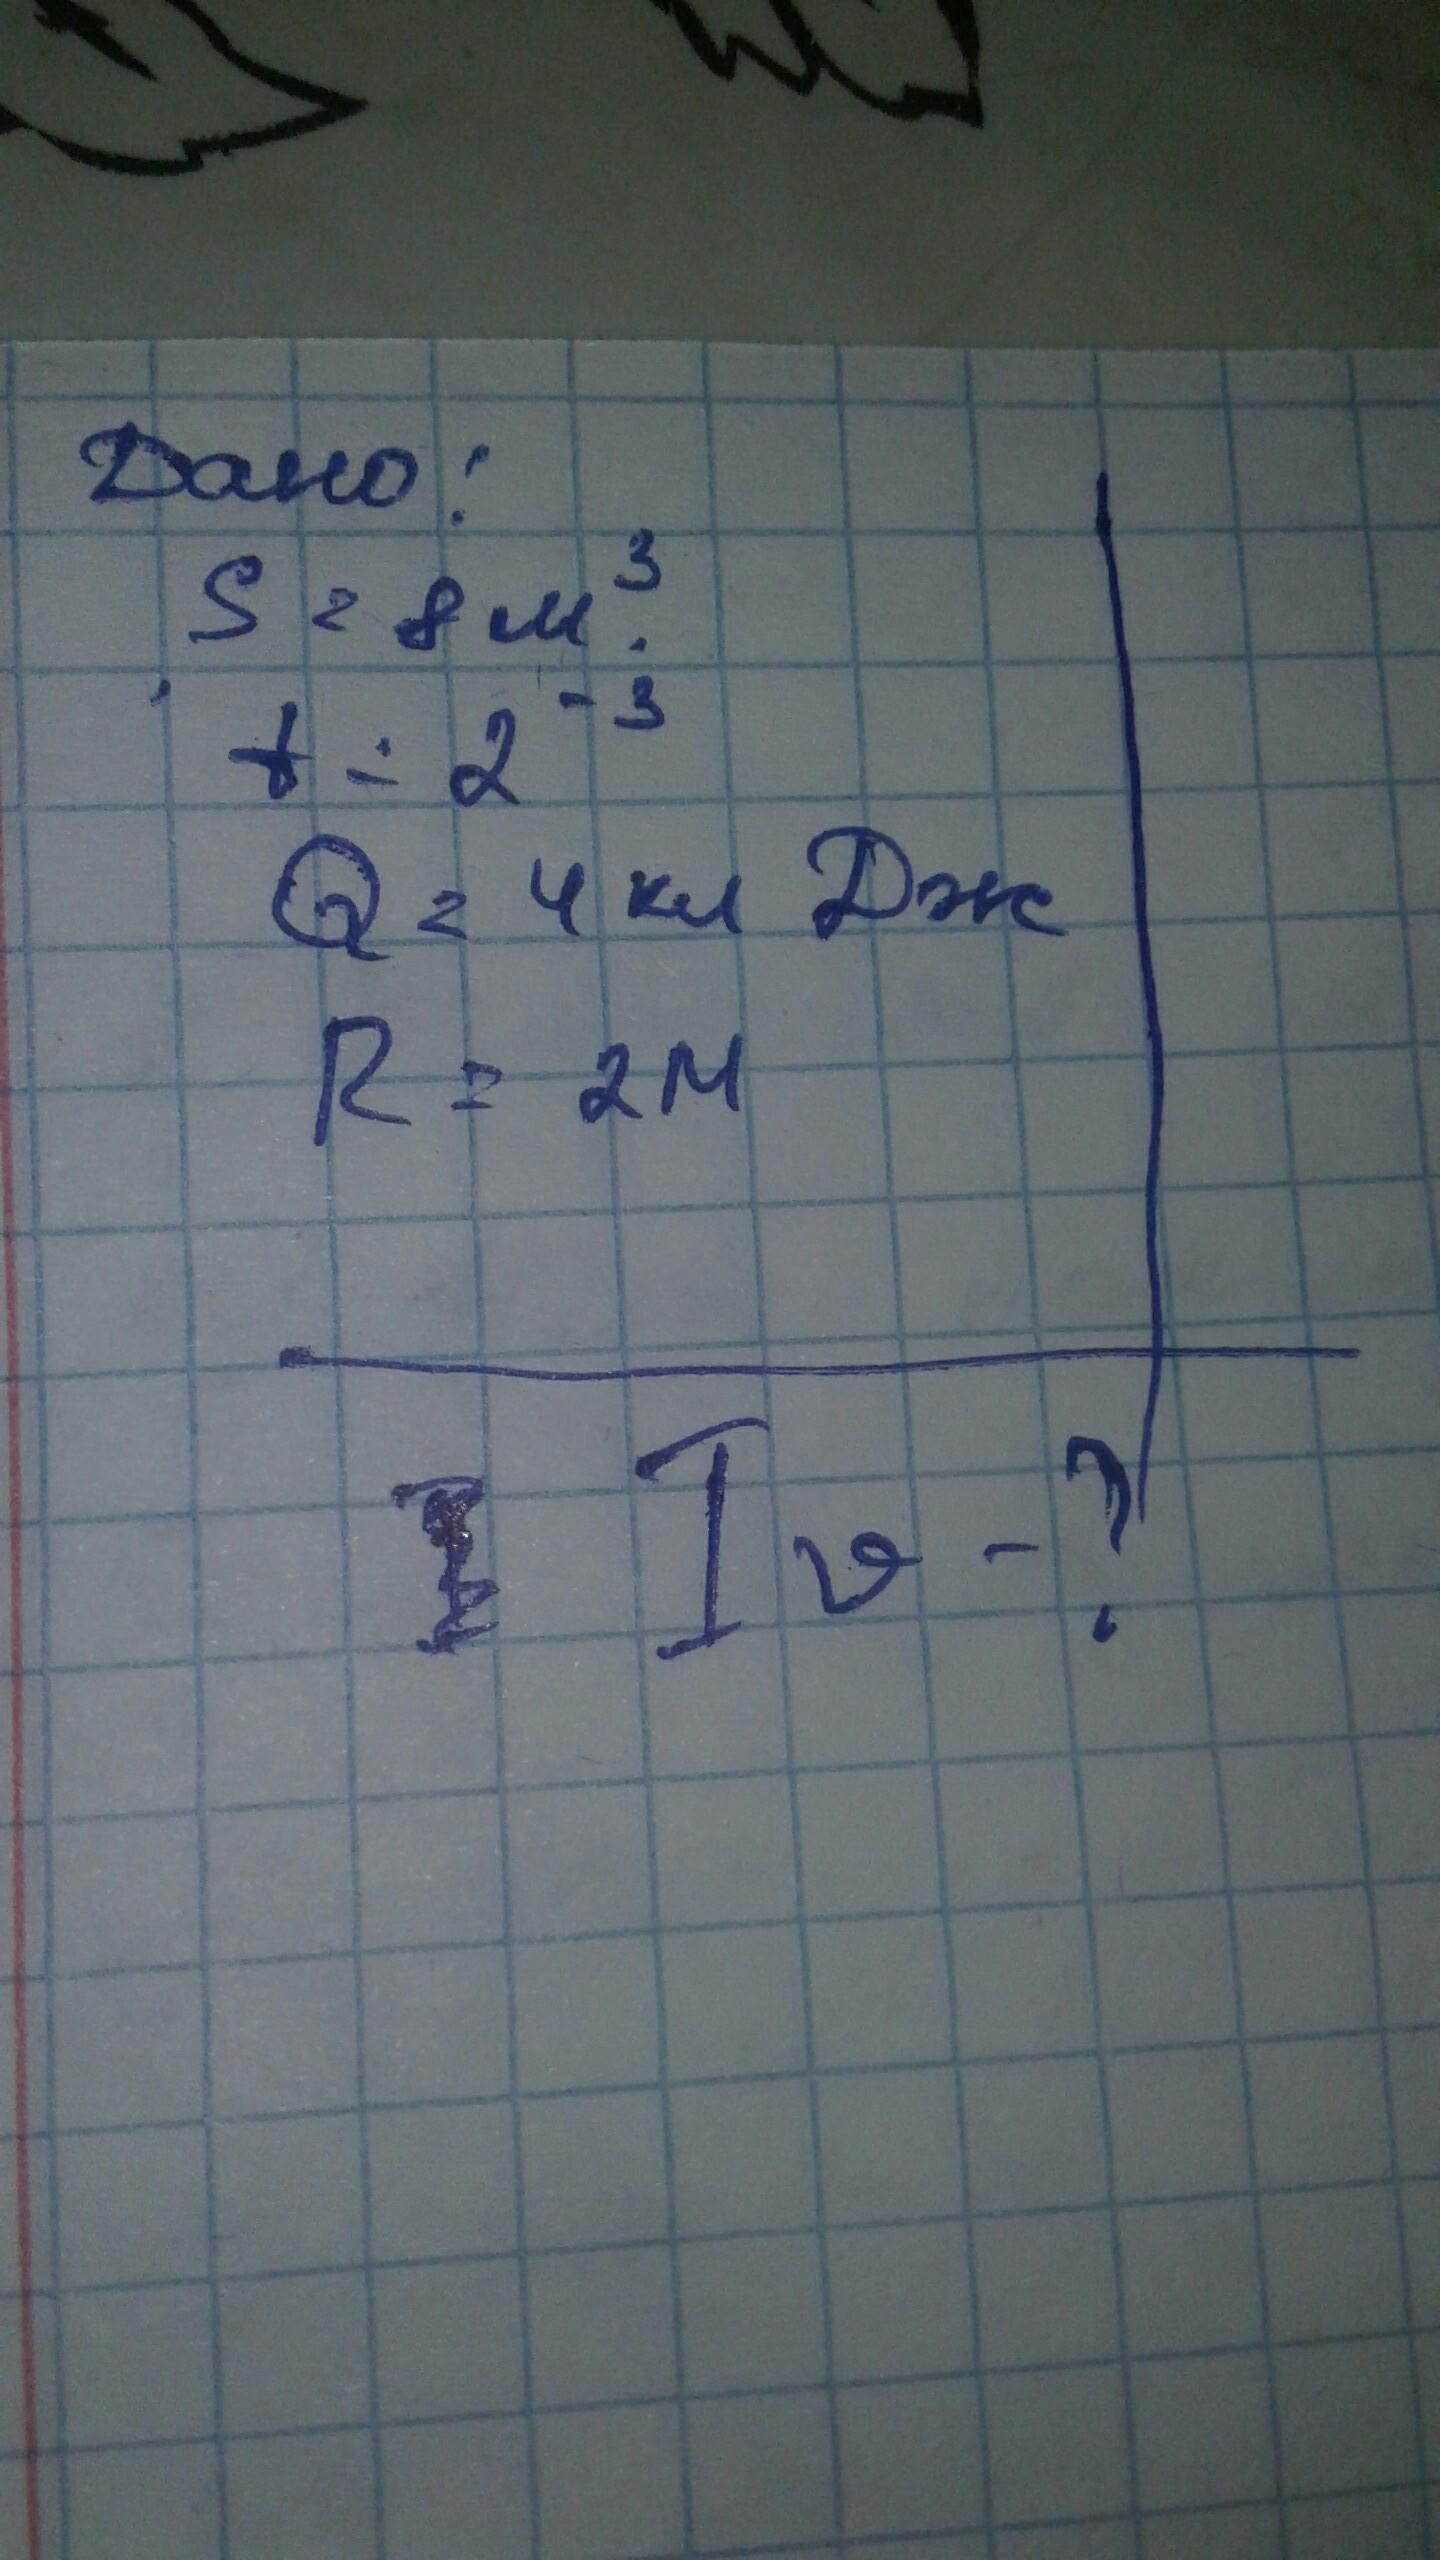 Дано:
S = 8 м³
t = 2⁻³
Q = 4 кл Дж
R = 2М
I υ - ?